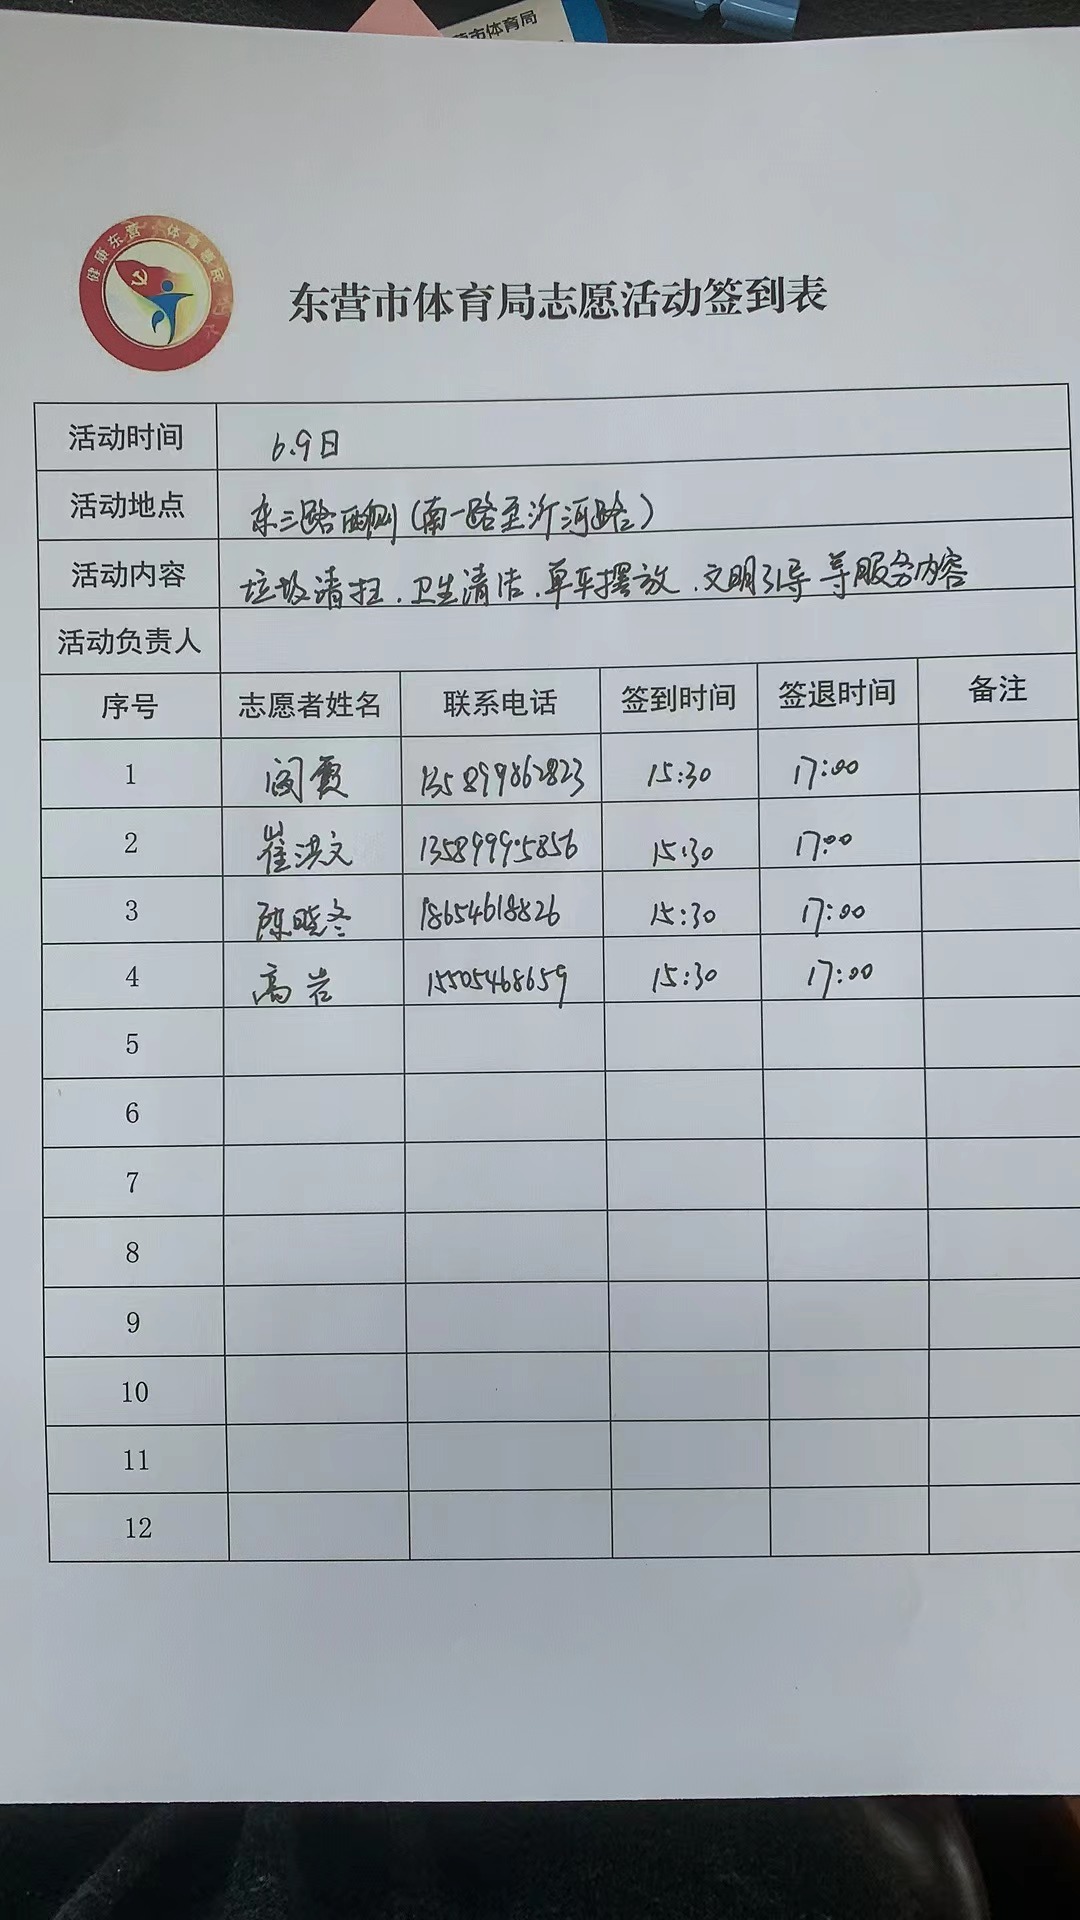 市体育局
健康东营 体育惠民
东营市体育局志愿活动签到表
活动时间 6.9日
活动地点 东三路西侧(南一路至沂河路)
活动内容 垃圾清扫、卫生清洁、单车摆放、文明引导等服务内容
活动负责人
序号 志愿者姓名 联系电话 签到时间 签退时间 备注
1 阎霞 135899862823 15:30 17:00
2 崔洪文 13589995856 15:30 17:00
3 陈晓冬 18654618826 15:30 17:00
4 高岩 15505468659 15:30 17:00
5
6
7
8
9
10
11
12